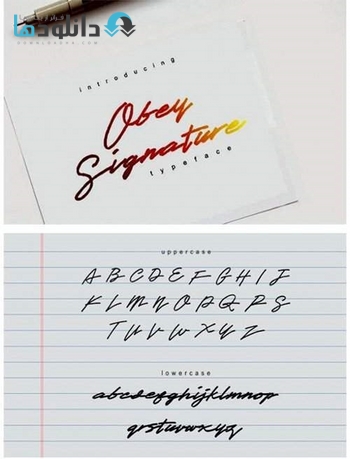 دانلودها
DOWNLOADHA.COM
introducing
Obey
Signature
typeface
uppercase
A B C D E F G H I J
K L M N O P Q R S
T U V W X Y Z
lowercase
abcdefghijklmnop
qrstuvwxyz